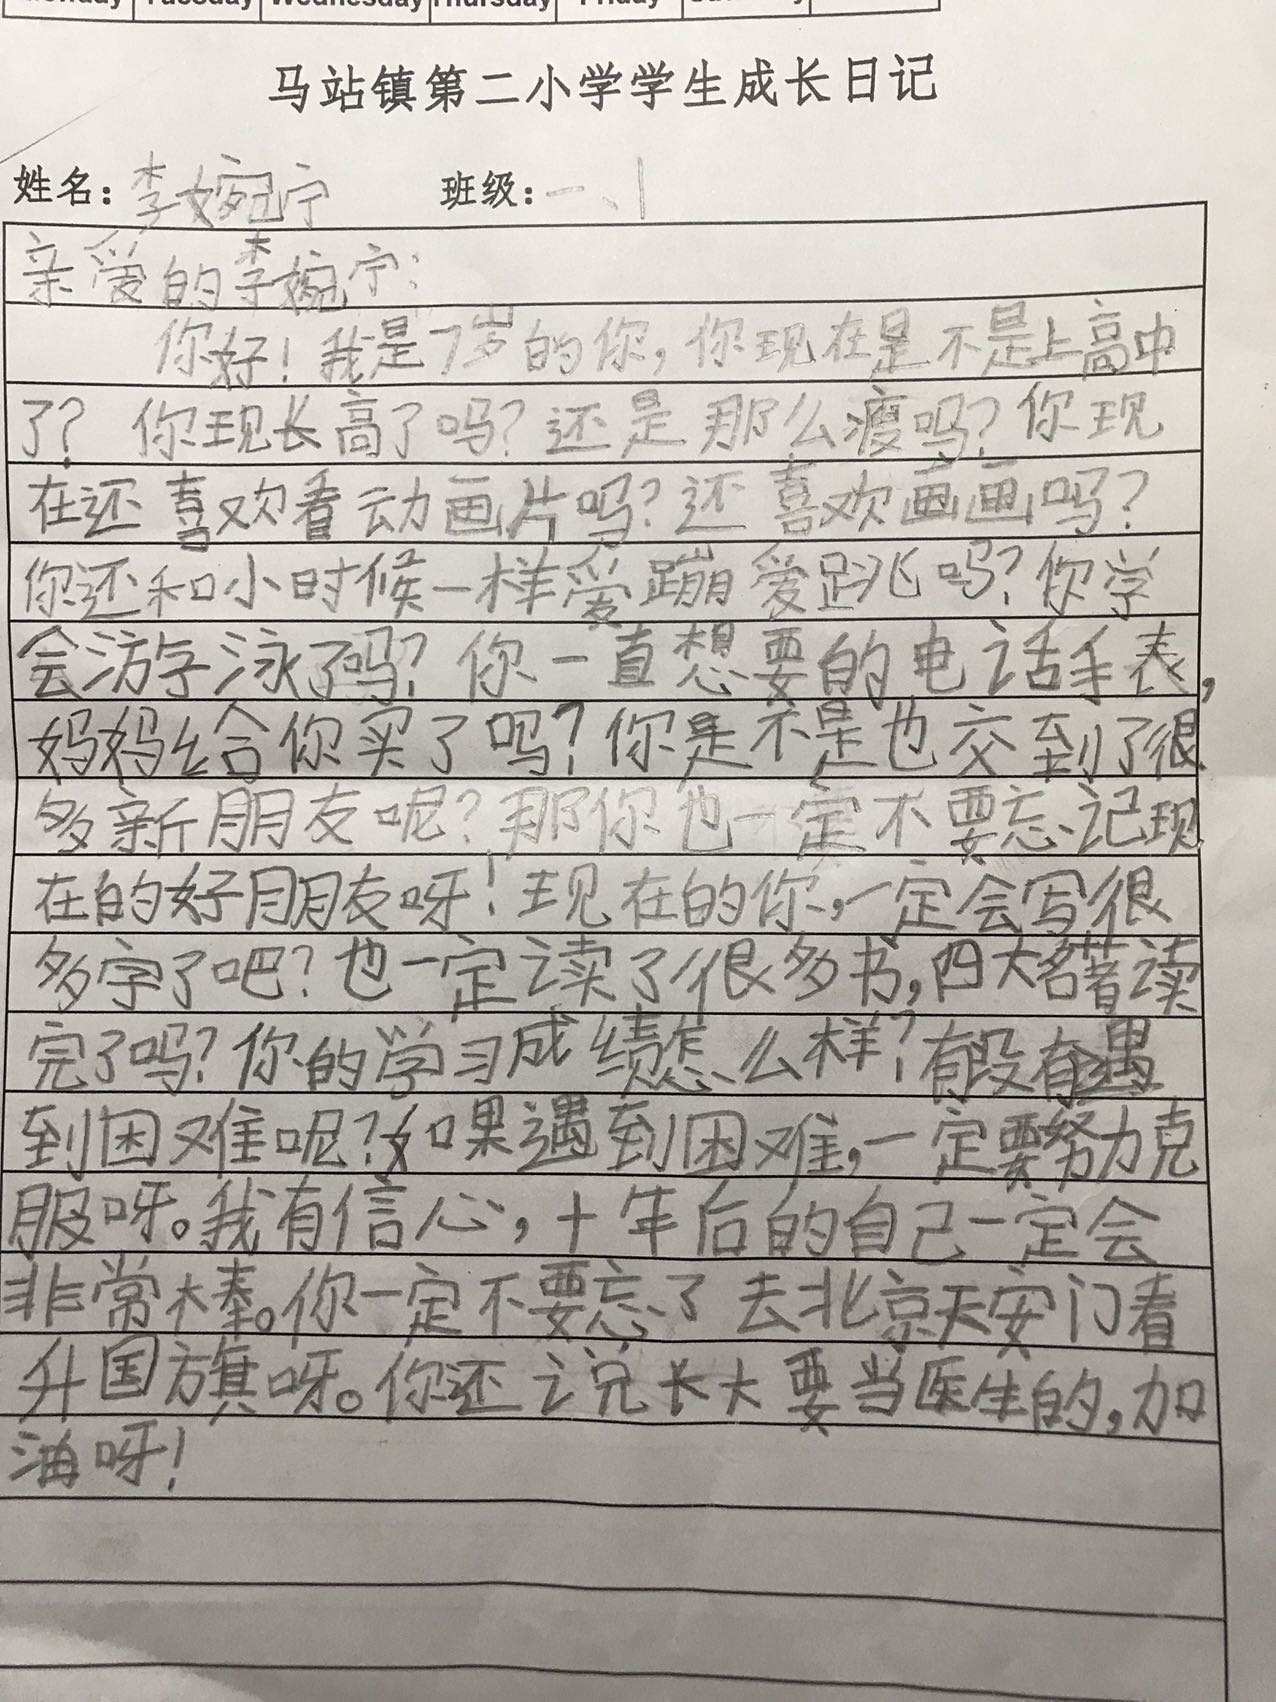 Tuesday Wednesday Thursday Friday
马站镇第二小学学生成长日记
姓名：李婉宁 班级：一、1
亲爱的李婉宁：
你好！我是7岁的你，你现在是不是上高中
了？你现长高了吗？还是那么瘦吗？你现
在还喜欢看动画片吗？还喜欢画画吗？
你还和小时候一样爱蹦爱跳吗？你学
会游泳了吗？你一直想要的电话手表，
妈妈给你买了吗？你是不是也交到了很
多新朋友呢？那你也一定不要忘记现
在的好朋友呀！现在的你，一定会写很
多字了吧？也一定读了很多书，四大名著读
完了吗？你的学习成绩怎么样？有没有遇
到困难呢？如果遇到困难，一定要努力克
服呀。我有信心，十年后的自己一定会
非常棒。你一定不要忘了去北京天安门看
升国旗呀。你还说长大要当医生的，加
油呀！